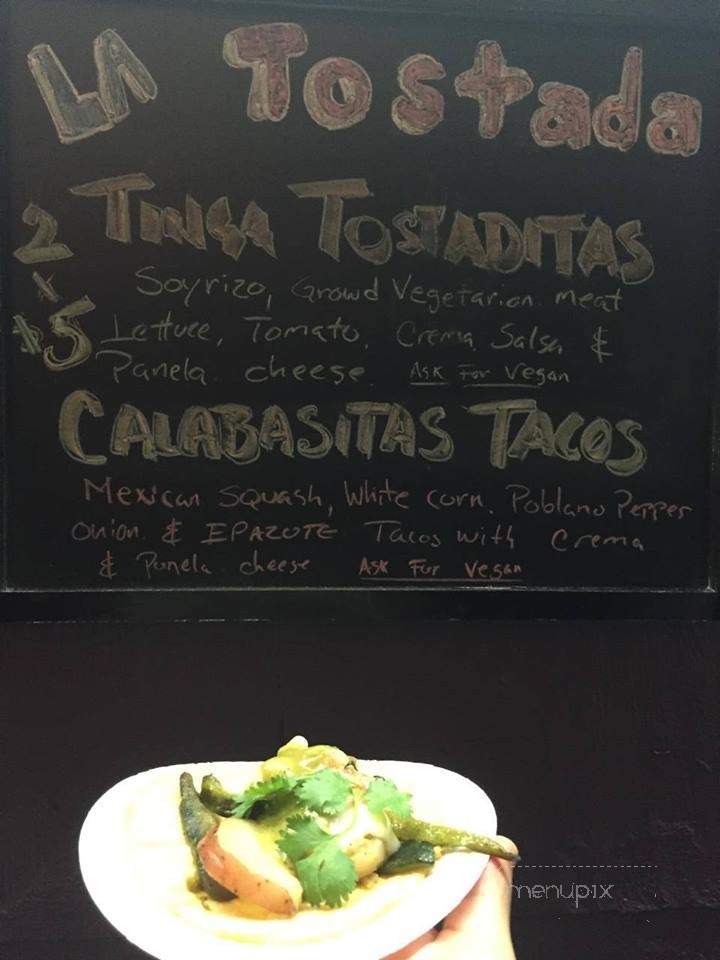 LA Tostada
2 TINGA TOSTADITAS
x
$5
Soyrizo, Growd Vegetarian meat
Lettuce, Tomato, Crema, Salsa &
Panela cheese Ask For Vegan
CALABASITAS TACOS
Mexican squash, White corn, Poblano Pepper
onion & EPAZOTE Tacos with Crema
& Panela cheese Ask For Vegan
menupix